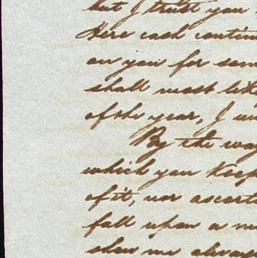 but I trust you
Here cash contin
on you for som
shall most like
of the year, I w
By the way
which you keep
of it, nor ascert
fall upon a m
shew me always